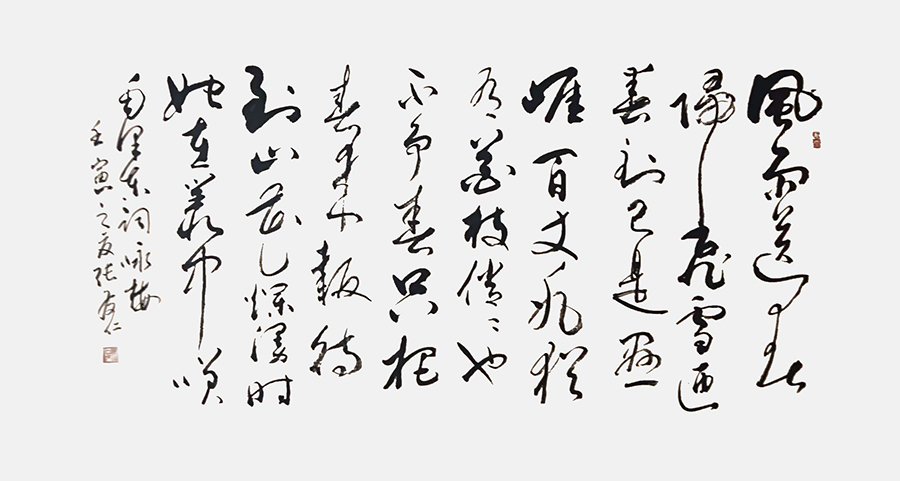 風雨送春
歸飛雪迎
春到已是懸
崖百丈冰猶
有花枝俏〻也
不争春只把
春来報待
到山花爛漫时
她在叢中咲
毛泽东词咏梅
壬寅之夏张有仁